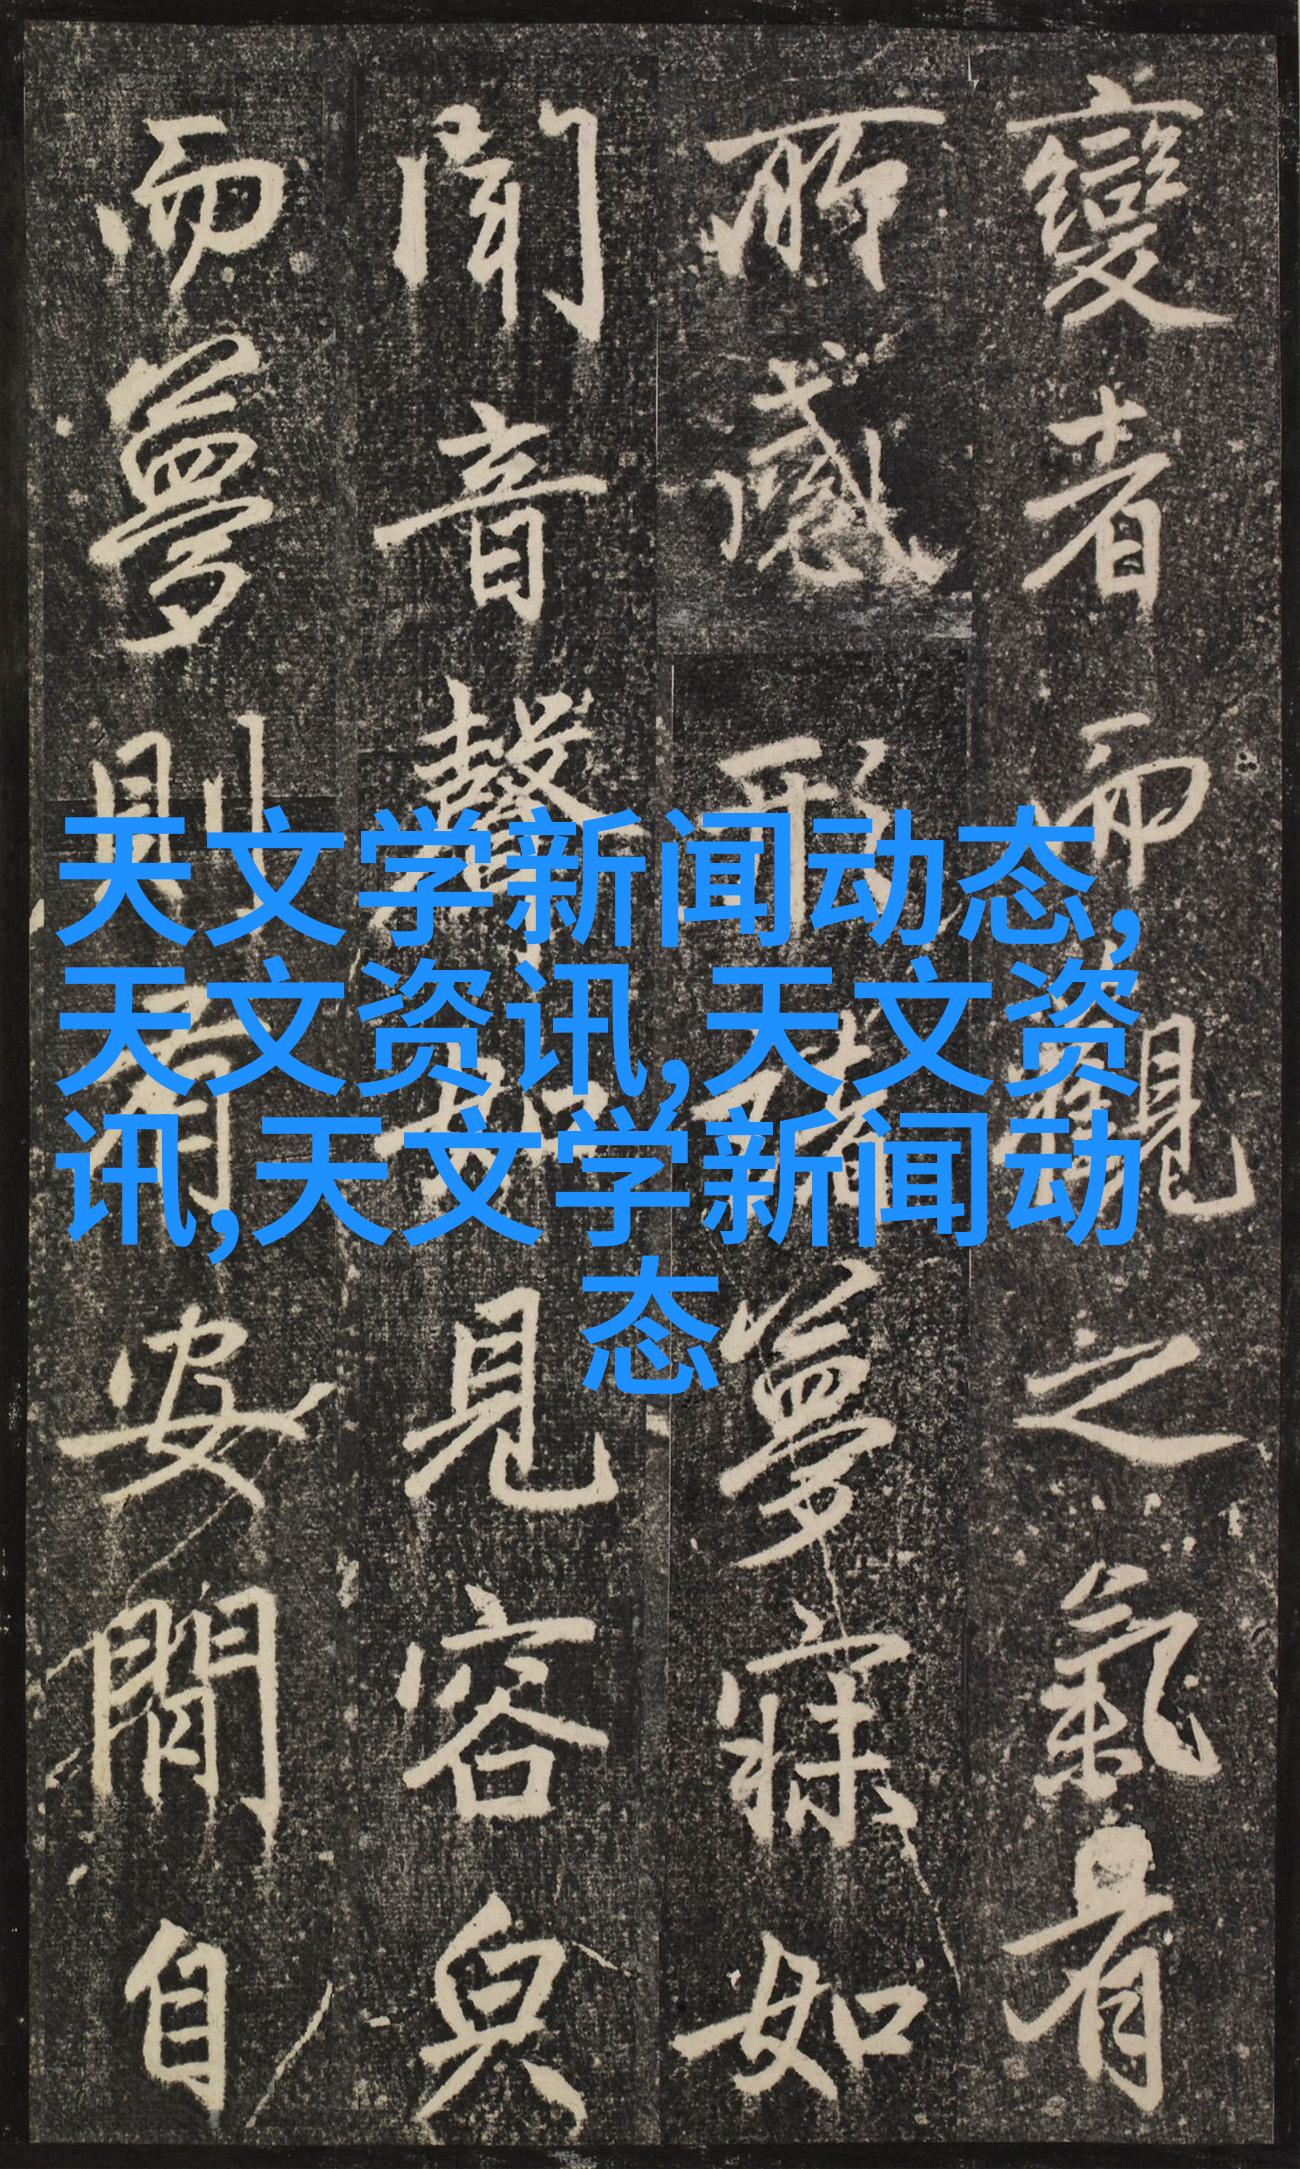 變者而觀之氣有
所感形諸夢寐如
聞音聲如見容皃
而夢則有安閒自
天文学新闻动态,
天文资讯,天文资
讯,天文学新闻动
态